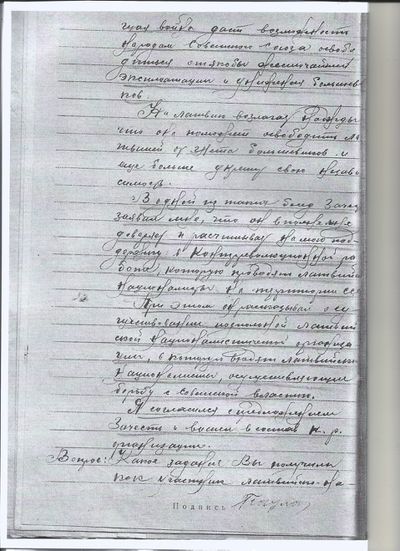 щая война даст возможность
народам Советского Союза освобо
диться от якобы жесточайшей
эксплоатации и унижения большеви
ков.
На латвии возлагал надежды
что она поможет освободить ла
тышей от гнета большевиков и
еще больше укрепит свою незави
симость.
В одной из таких бесед Закес
заявил мне, что он вполне мне
доверяет и рассчитывает на мою под
держку в контрреволюционной ра
боте, которую проводят латвийские
националисты на территории ССС
При этом он рассказывал о су
ществовании подпольной латвий
ской националистической организа
ции, в которую входят латвийские
националисты, осуществляющие
борьбу с советской властью.
Я согласился с предложением
и вошел в состав к.р.
организации.
Вопрос: Какое задание Вы получили
как участник латвийской на
Подпись